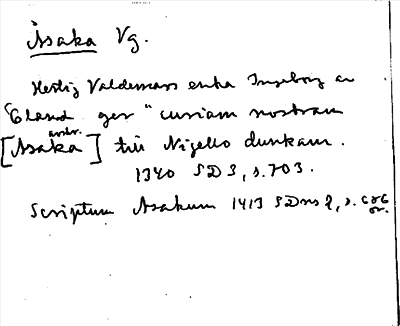 Åsaka Vg.
Hertig Valdemars enka Ingeborg av
Öland ger "curiam nostram
[Asaka] till Nigello dunkam.
1340 SD 5, s. 703.
Scriptum Asakum 1413 SDns 2, s. 
or.